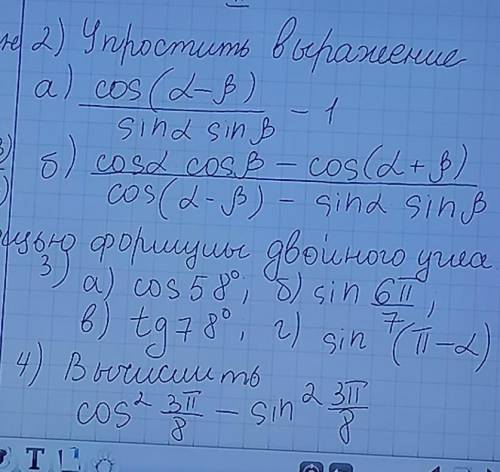 2) Упростить выражение
а) cos(α-β)/sinα sinβ - 1
б) cosα cosβ - cos(α+β)/cos(α-β) - sinα sinβ
формулы двойного угла
3) а) cos58°; б) sin 6π/7,
в) tg78°, г) sin (π-α)
4) Вычислить
cos² 3π/8 - sin² 3π/8
T